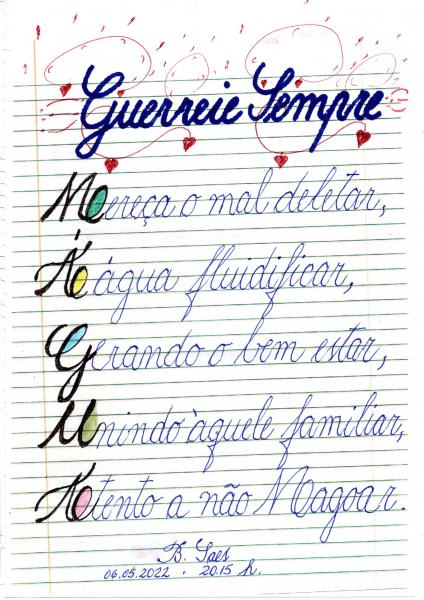 Guerreie Sempre
Mereça o mal deletar,
Á água fluidificar,
Gerando o bem estar,
Unindo àquele familiar,
Atento a não Magoar.
B. Saes
06.05.2022 . 20.15 h.